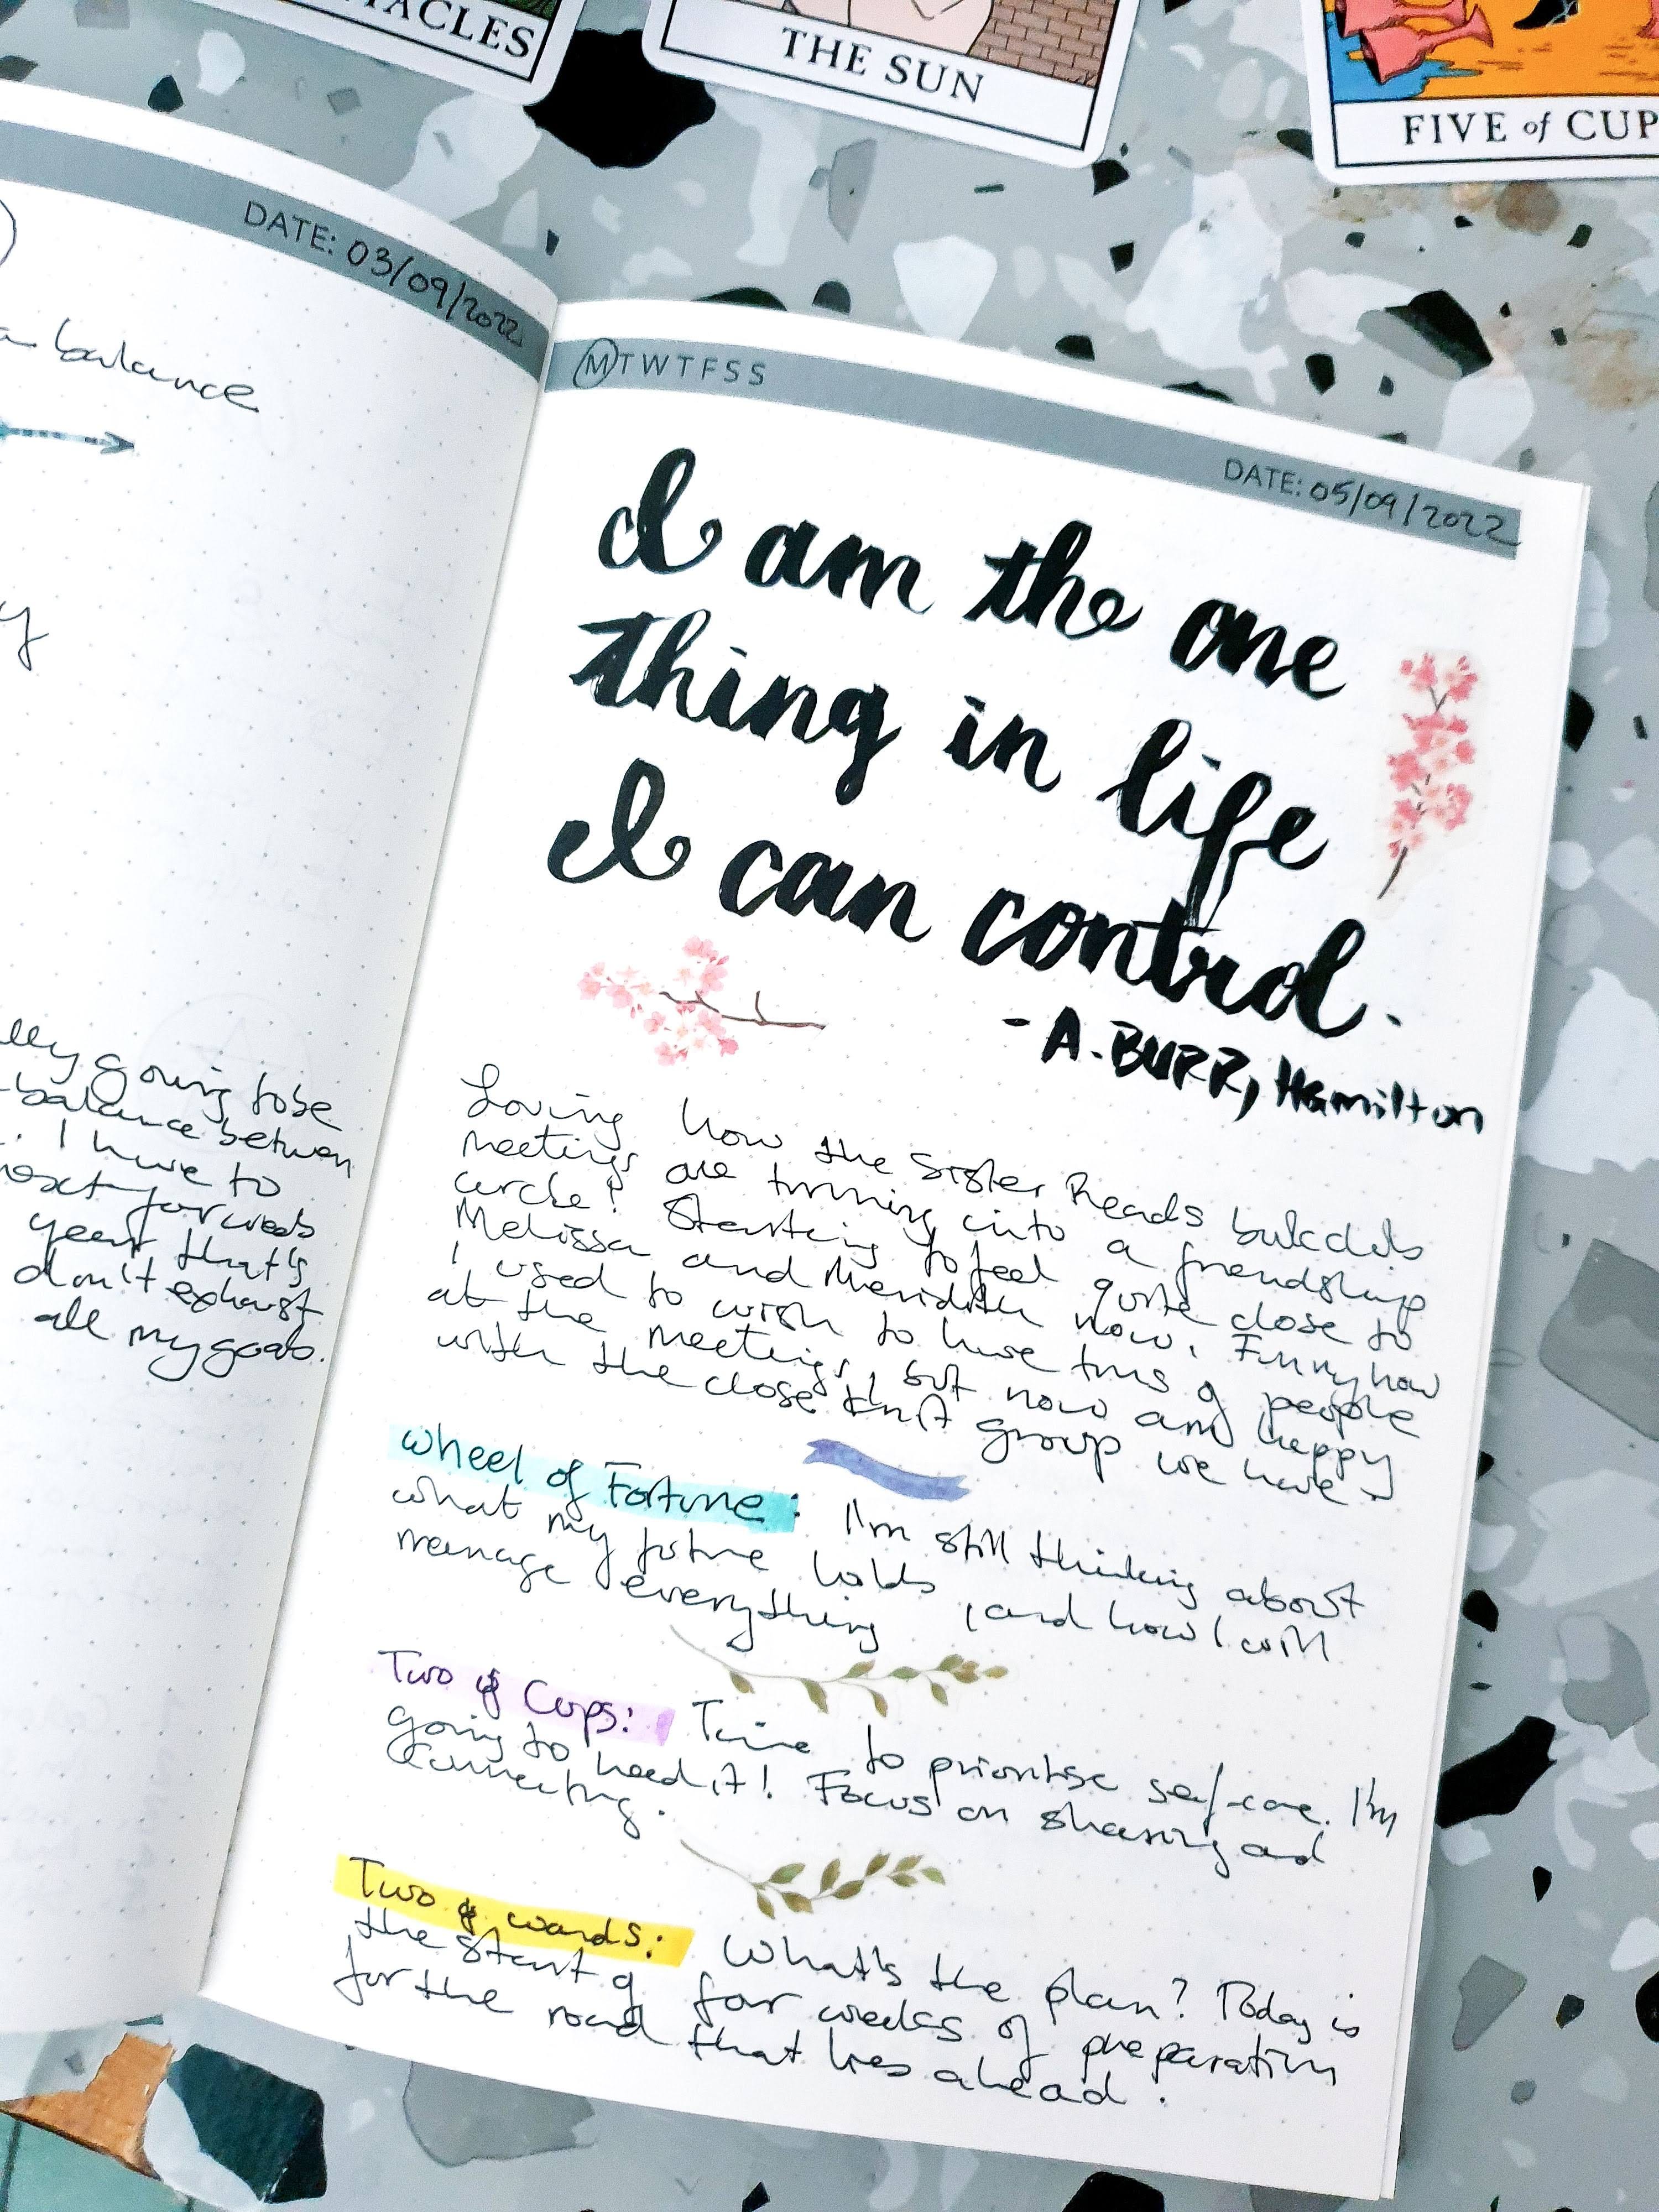 ACLES
THE SUN
FIVE of CUP
DATE: 03/09/2022
balance
y
lly going to be
balance between
. I have to
next four weeks
year that's
don't exhaust
all my goals.
M T W T F S S
DATE: 05/09/2022
I am the one
thing in life
I can control.
- A. BURR, Hamilton
Loving how the Sister Reads bookclub
meetings are turning into a friendship
circle! Starting to feel quite close to
Melissa and Meridith now. Funny how
I used to wish to have tons of people
at the meetings, but now am happy
with the close knit group we have.
Wheel of Fortune: I'm still thinking about
what my future holds, and how I will
manage everything
Two of Cups: Time to prioritise self-care. I'm
going to need it! Focus on sharing and
connecting.
Two of wands: What's the plan? Today is
the start of four weeks of preparation
for the road that lies ahead.